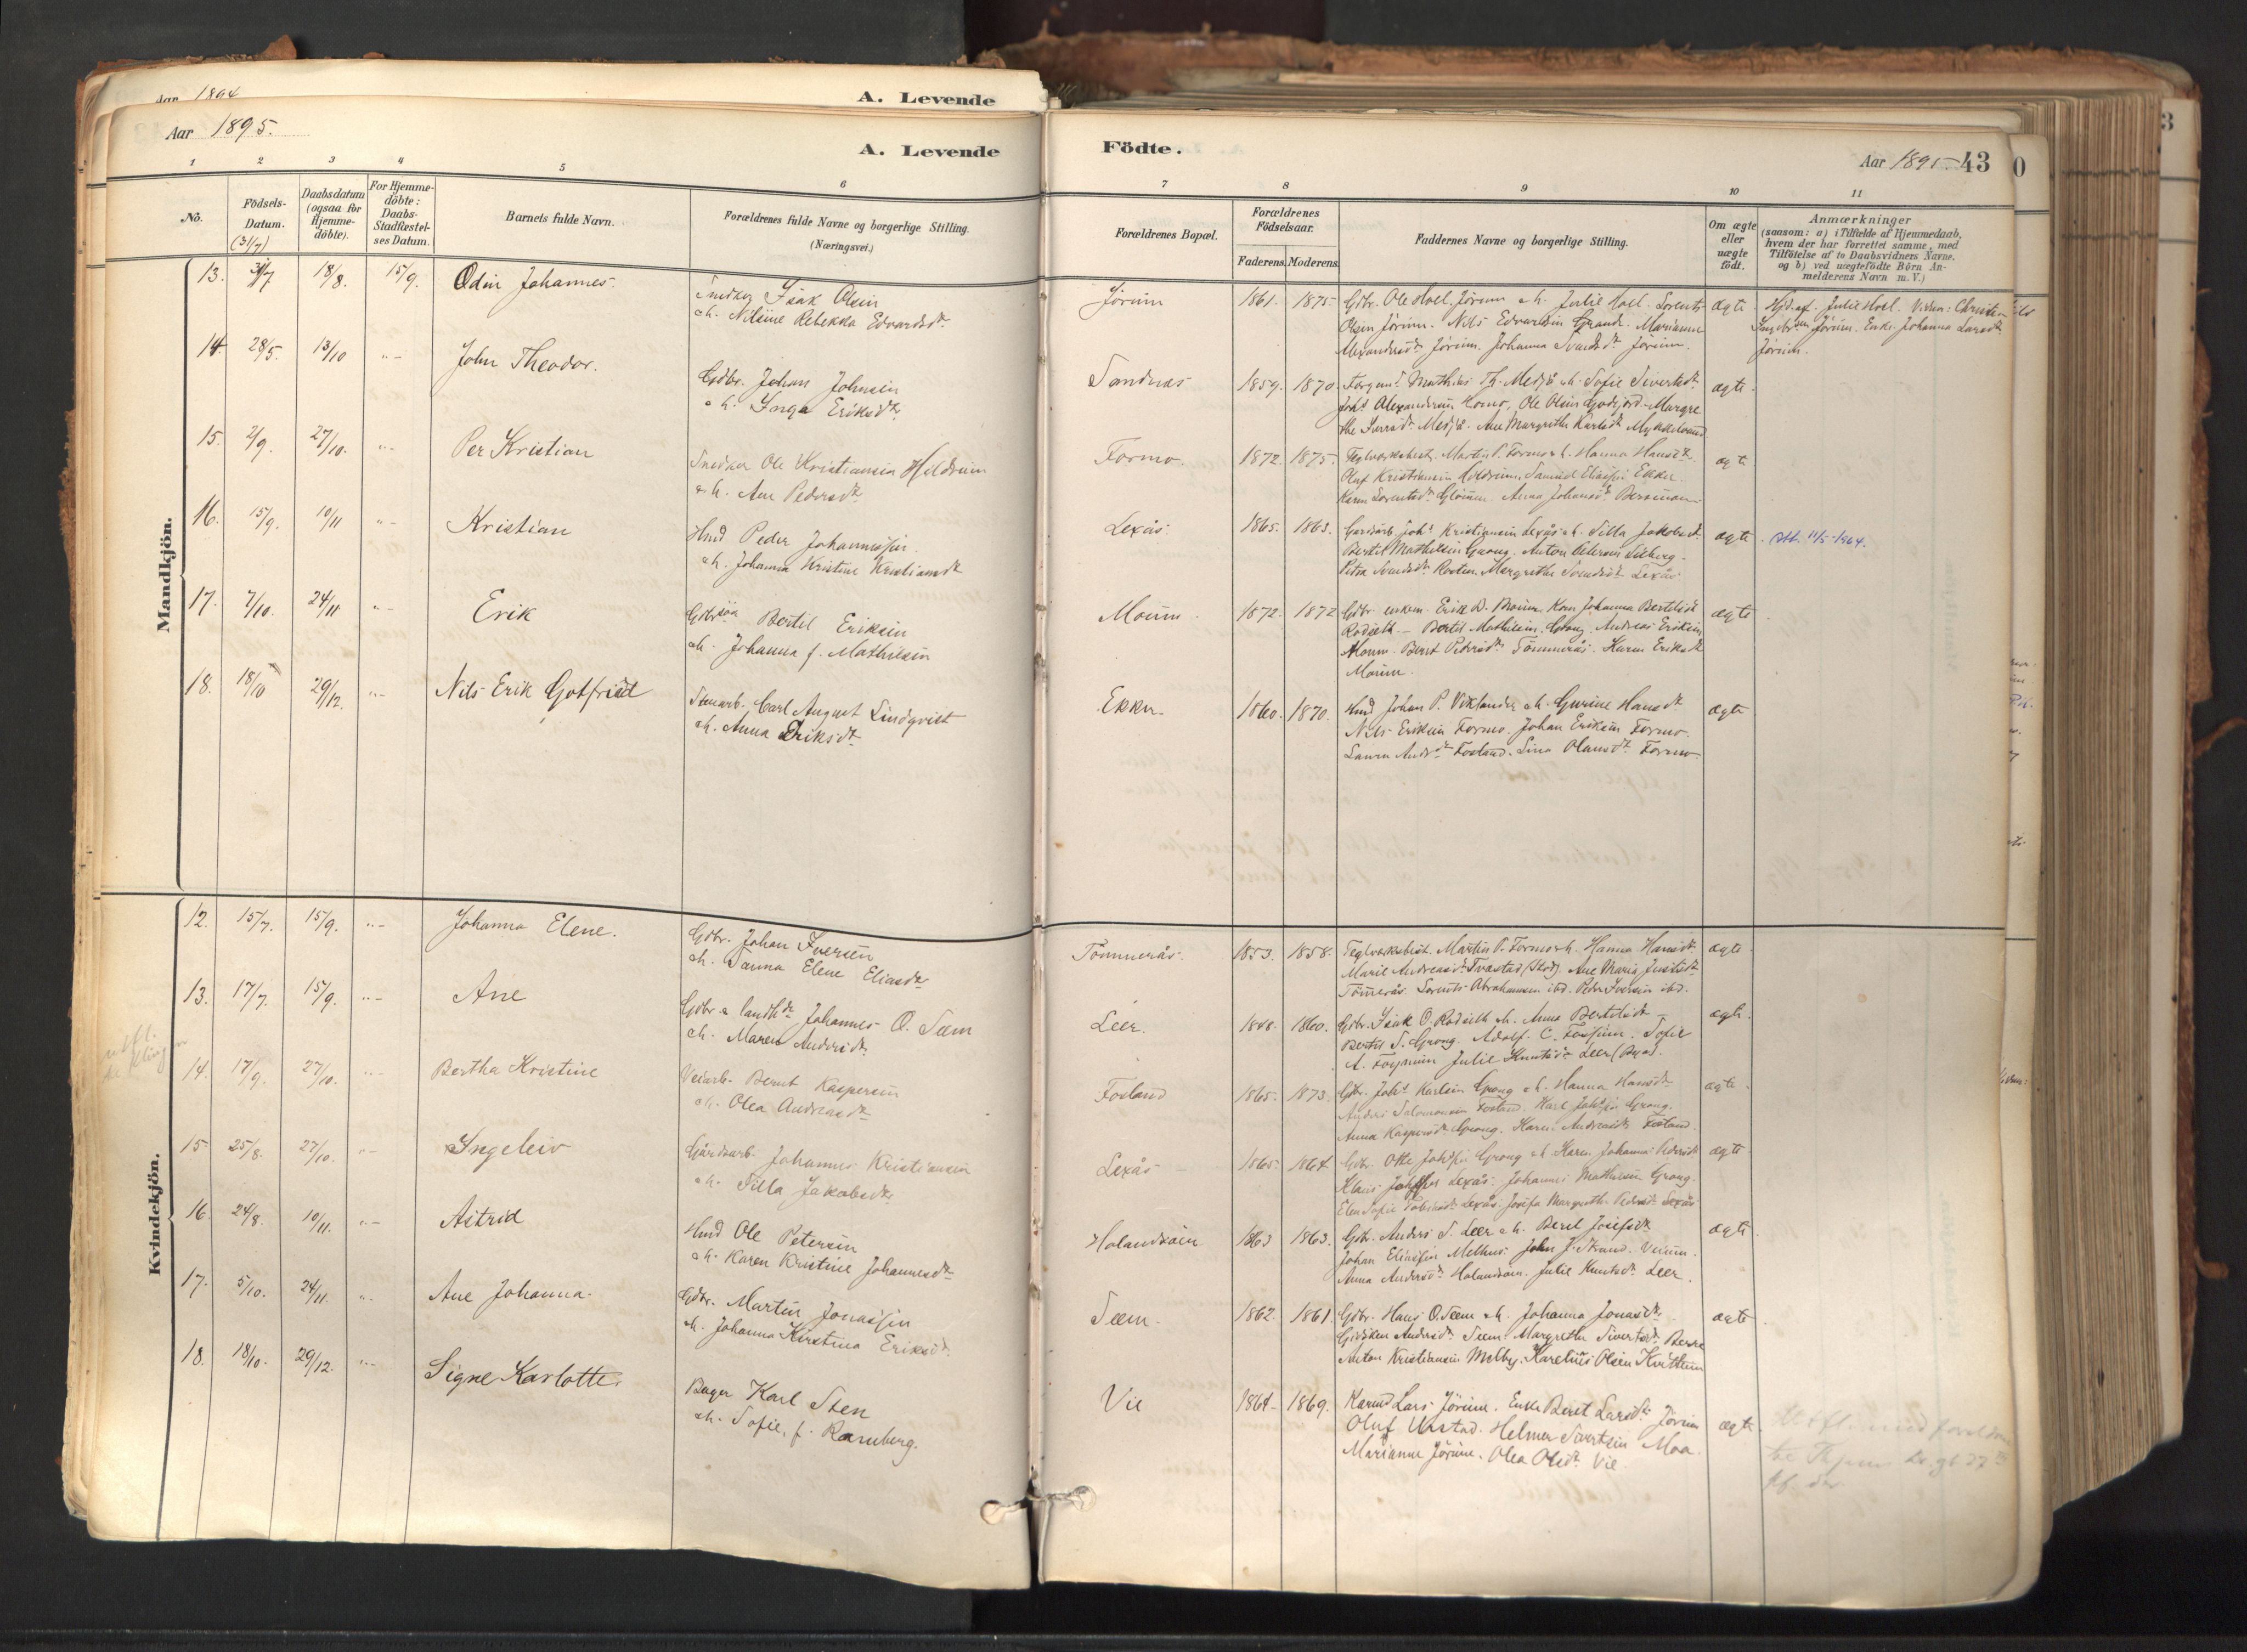 Aar 1894
A. Levende
Aar 1895.
A. Levende
Födte.
Aar 1895
43
1 2 3 4 5 6 7 8 9 10 11
No.
Födsels-
Datum.
(31/7)
Daabsdatum
(ogsaa for
Hjemme-
döbte).
For Hjemme-
döbte:
Daabs-
Stadfæstel-
ses Datum.
Barnets fulde Navn.
Forældrenes fulde Navne og borgerlige Stilling.
(Næringsvei.)
Forældrenes Bopæl.
Forældrenes
Födselsaar.
Faderens. Moderens.
Faddernes Navne og borgerlige Stilling.
Om ægte
eller
uægte
födt.
Anmærkninger
(saasom: a) i Tilfælde af Hjemmedaab,
hvem der har forrettet samme, med
Tilföielse af to Daabsvidners Navne.
og b) ved uægtefödte Börn An-
melderens Navn m. V.)
Mandkjön.
13. 31/7 18/8. 15/9. Odin Johannes.
Snedker Isak Olsen
oh. Nilsine Rebekka Edvardsdr.
Jörum 1861. 1875.
Gdbr. Ole Hoel. Jörum oh. Julie Hoel. Lorents
Olsen Jörum. Nils Edvardsen Grande. Marianne
Alexandersdr. Jörum. Johanna Svendsdr Jörum.
ægte
Hjd. af. Julie Hoel. Vidner: Christen
Ingebrsen Jörum. Enke Johanna Larsdr.
Jörum.
14. 28/5. 13/10 "- John Theodor.
Gdbr. Johan Johnsen
oh. Inga Eriksdr.
Sandnes 1859. 1870.
Forgm. Mathias Th. Medjå oh. Sofie Sivertsdr.
Johs Alexandersen Homo, Ole Olsen Godejord. Margre
the Larsdr. Medjå. Ane Margrethe Karlsdr. Mykkelvand.
ægte
15. 2/9. 27/10. "- Per Kristian
Snedker Ole Kristiansen Hildrum
oh. Ane Pedersdr.
Formo. 1872. 1875.
Teglverksbest. Martin P. Formo oh. Hanna Hansdr.
Oluf Kristiansen Hildrum. Samuel Eliassen Ekker.
Karen Lorentsdr. Gløimem. Anna Johansdr.
ægte
16. 15/9. 10/11 "- Kristian
Hmd Peder Johannessen.
oh. Johanna Kristine Kristiansdr
Lexås. 1865. 1863.
Gaardarb. Johs Kristiansen Lexås oh. Silla Jakobsdr.
Bertel Mathisen Grong. Anton Petersen
Petra Svendsdr. Rosten. Margrethe Svendsdr. Lexås
ægte
Död. 11/5-1964.
17. 7/10. 24/11 "- Erik
Gdbrsøn Bertel Eriksen
oh. Johanna f. Mathisen
Moum. 1872. 1872
Gdbr. enkem. Erik B. Moum. Kone Johanna Bertelsdr
Rodseth - Bertel Mathisen Grong. Andreas Eriksen
Moum. Beret Petersdr Tömmerås. Karen Eriksdr
Moum.
ægte
18. 18/10 29/12. "- Nils Erik Gotfried
Stenarb. Carl August Lindqvist
oh. Anna Eriksdr.
Ekker. 1860. 1870.
Hmd Johan P. Viklander oh. Gurine Hansdr
Nils Eriksen Formo. Johan Eriksen Formo.
Laura Andrsdr Fosland. Lina Olausdr. Formo.
ægte
Kvindekjön.
12. 15/7. 15/9. "- Johanna Elene.
Gdbr. Johan Iversen
oh. Janna Elene Eliasdr.
Tömmerås. 1853. 1858.
Teglverksbest. Martin P. Formo oh. Hanna Hansdr.
Marie Andreasdr. Tvæstad (Stod). Ane Maria Justsdr.
Tömerås. Lorents Abrahamsen ibd. Peder Iversen ibd.
ægte
13. 17/7. 15/9. "- Ane
Gdbr & landh. Johannes O. Sæm
oh. Maren Andersdr.
Leer. 1848. 1860.
Gdbr. Isak O. Rodseth oh. Anna Bertelsdr -
Bertel S. Grong. Adolf. C. Fossum. Sofie
A. Fossum Julie Knutsdr Leer.
ægte
14. 17/9. 27/10. "- Bertha Kristine
Veiarb. Bernt Kaspersen
oh. Olea Andreasdr
Fosland 1865. 1873.
Gdbr. Johs Karlsen Grong oh. Hanna Hansdr
Anders Salomonsen Fosland. Karl Johssen Grong.
Anna Kaspersdr Grong. Karen Andreasdr. Fosland.
ægte
15. 25/8. 27/10. "- Ingeleiv
Gårdarb. Johannes Kristiansen
oh. Silla Jakobsdr.
Lexås 1865. 1864.
Gdbr. Otte Johssen Grong oh Karen Johanna Pedersdr
Klaus Lexås. Johannes Mathisen Grong.
Elen Sofie Lexås. Josefa Margreth. Pedersdr Lexås
ægte
16. 24/8. 10/11. "- Astrid
Hmd Ole Petersen
oh. Karen Kristine Johannesdr.
Holandsöien 1863 1863.
Gdbr. Anders S. Leer oh. Beret Josefsdr
Johan Eliassen Melhus. John J. Strand. Veium.
Anna Andersdr. Holandsöien. Julie Knutsdr. Leer.
ægte
17. 5/10. 24/11. "- Ane Johanna.
Gdbr. Martin Jonassen
oh. Johanna Kristina Eriksdr.
Sæm. 1862. 1861.
Gdbr. Hans O. Sæm oh. Johanna Jonasdr.
Gidsken Andersdr. Sæm. Margrethe Sivertsdr Berre
Anton Kristiansen Melby. Karelius Olsen Kvittum
ægte
18. 18/10. 29/12. "- Signe Karlotte.
Bager Karl Sten
oh. Sofie, f. Ramberg.
Vie 1864. 1869.
Karmd Lars Jörum. Enke Beret Larsdr. Jörum
Oluf Urstad. Helmer Sivertsen Moa.
Marianne Jörum. Olea Olsdr. Vie.
ægte